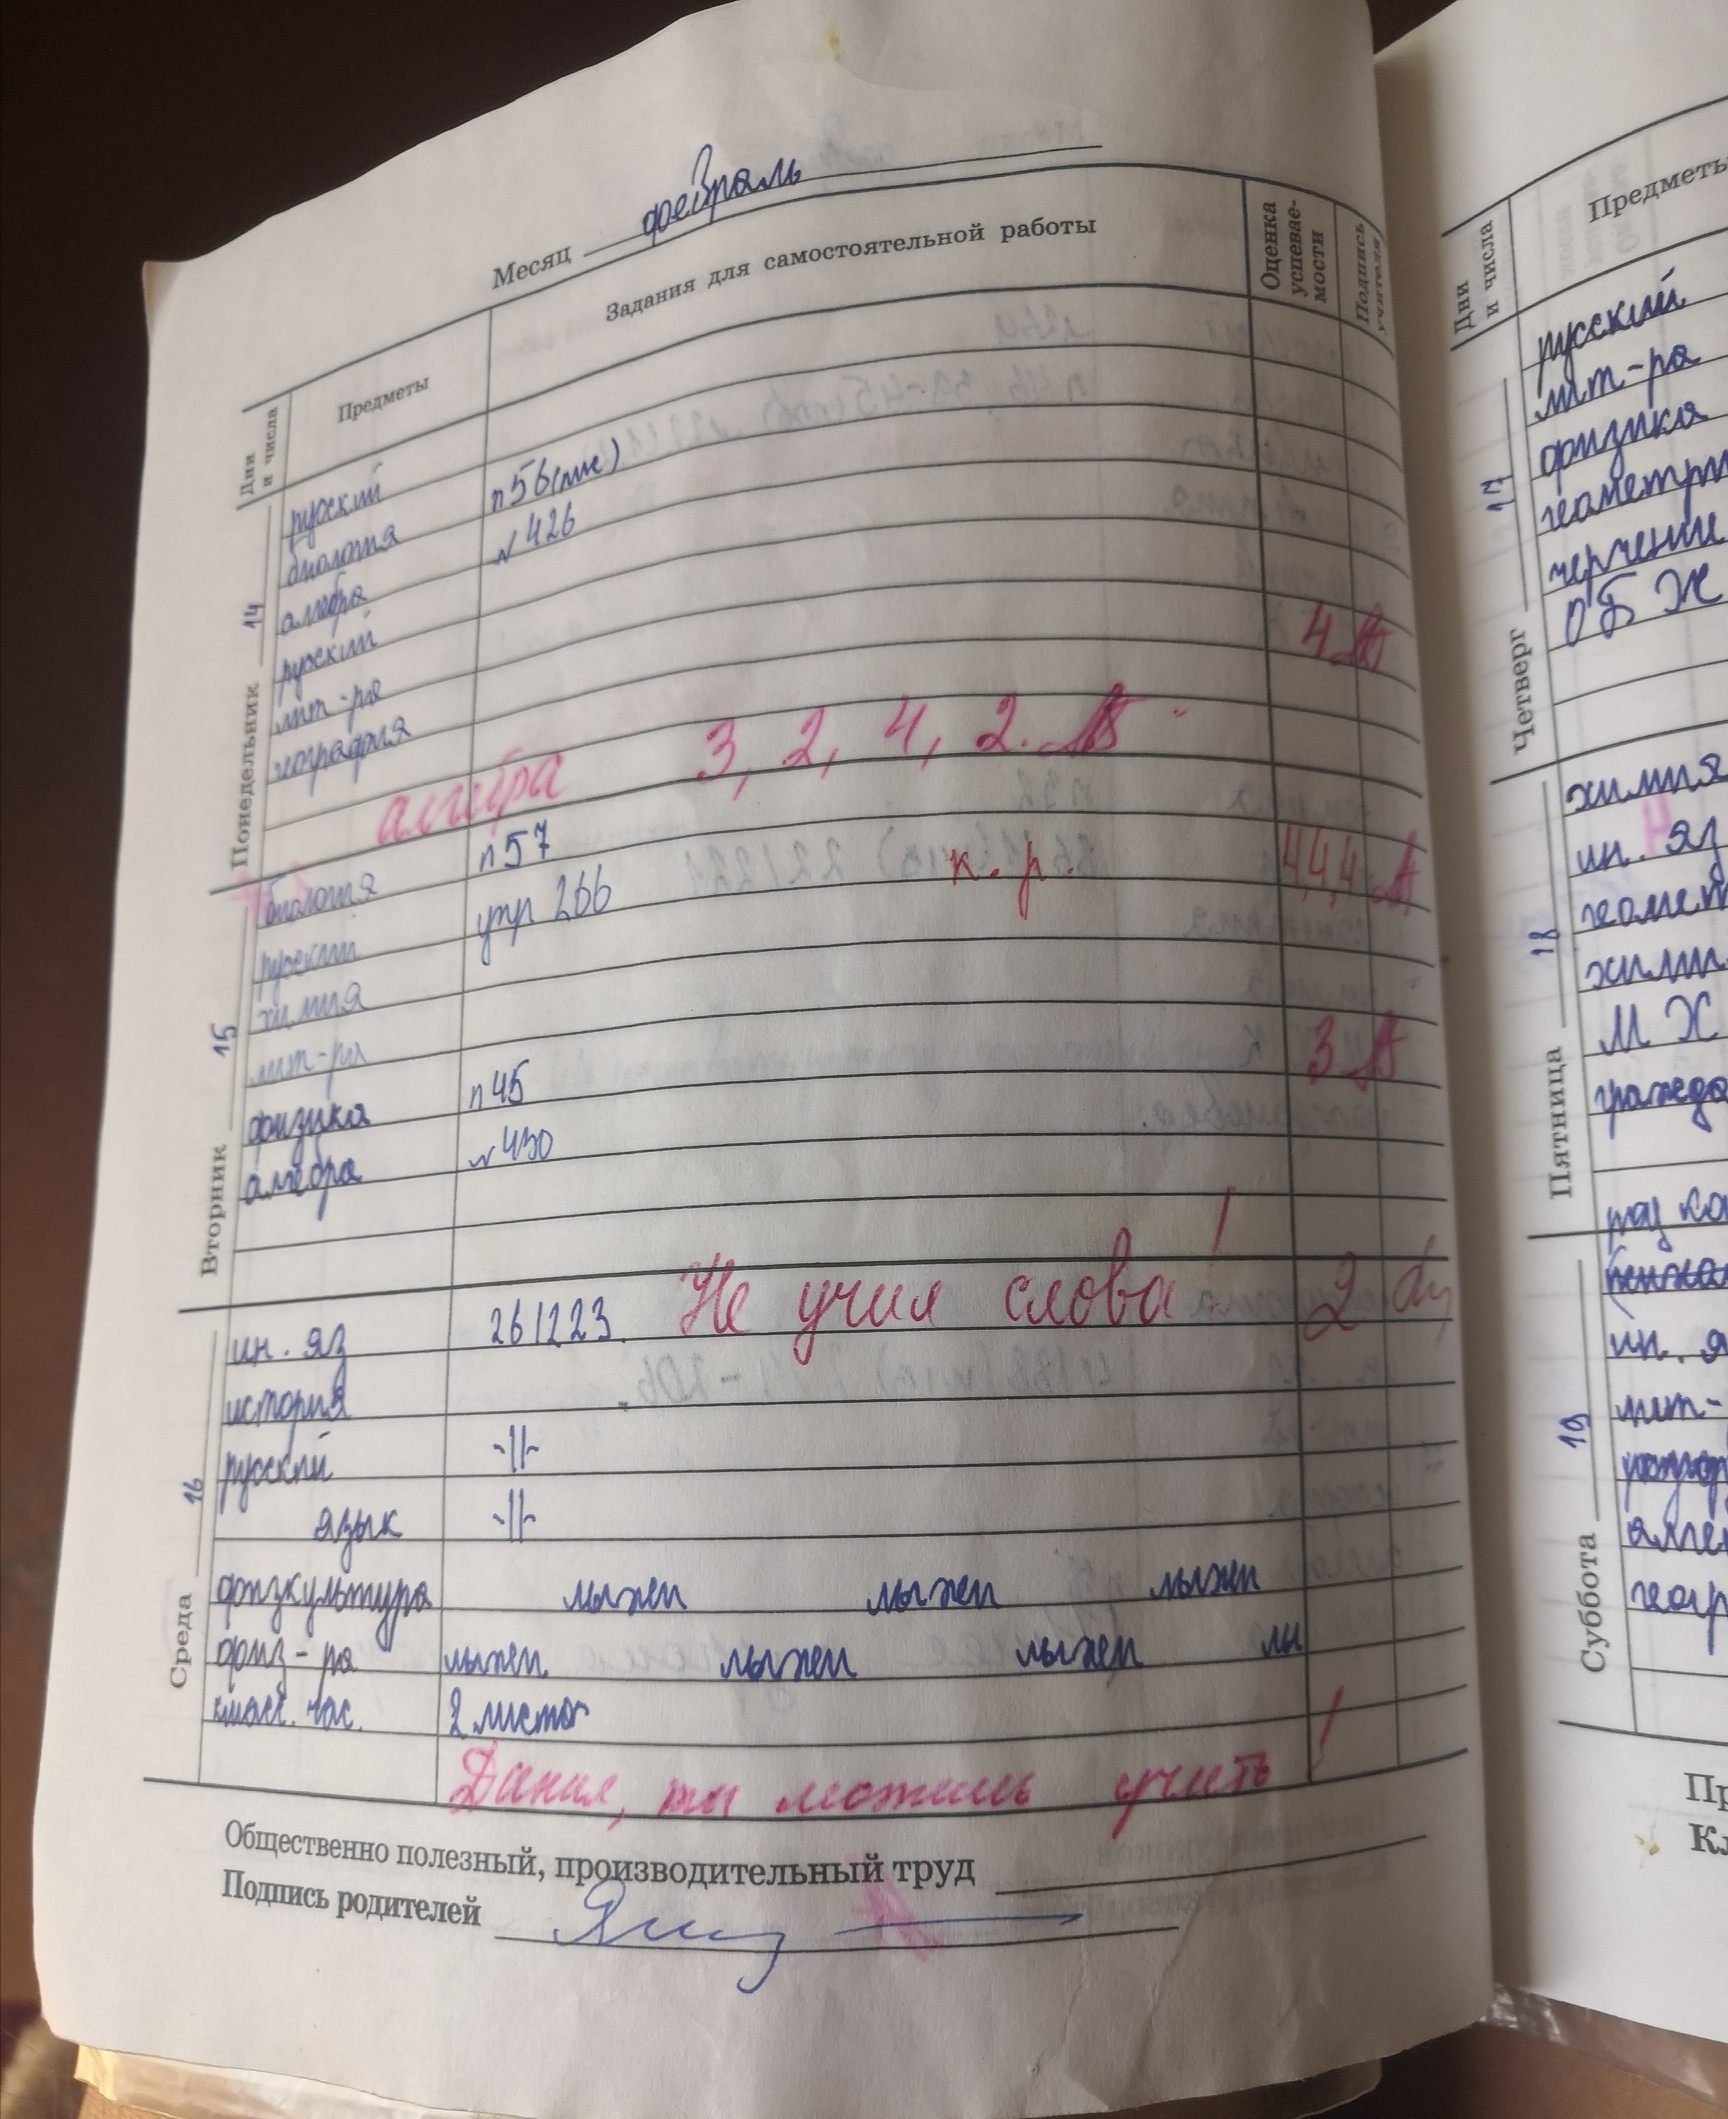 Месяц февраль
Дни и числа Предметы Задания для самостоятельной работы Оценка успеваемости Подпись учителя
Понедельник 14
русский
биология п 56 (пис)
алгебра № 426
русский
лит-ра
география 4
алгебра 3, 2, 4, 2.
Вторник 15
биология п 57
русский упр 266 к. р. 4,4,4
химия
лит-ра
физика п 45 3
алгебра № 430
Среда 16
ин. яз 261223. Не учил слова! 2
история
русский -||-
язык -||-
физкультура лыжи лыжи лыжи
физ-ра лыжи лыжи лыжи лы
класс. час. 2 листа
Данил, ты можешь учить!
Общественно полезный, производительный труд
Подпись родителей
Дни и числа Предметы
Четверг 17
русский
лит-ра
физика
геометри
черчение
ОБЖ
Пятница 18
химия
ин. яз 4
геомет
хими
МХ
гражда
Суббота 19
ин. я
лит-
алге
геогр
Пр
Кл